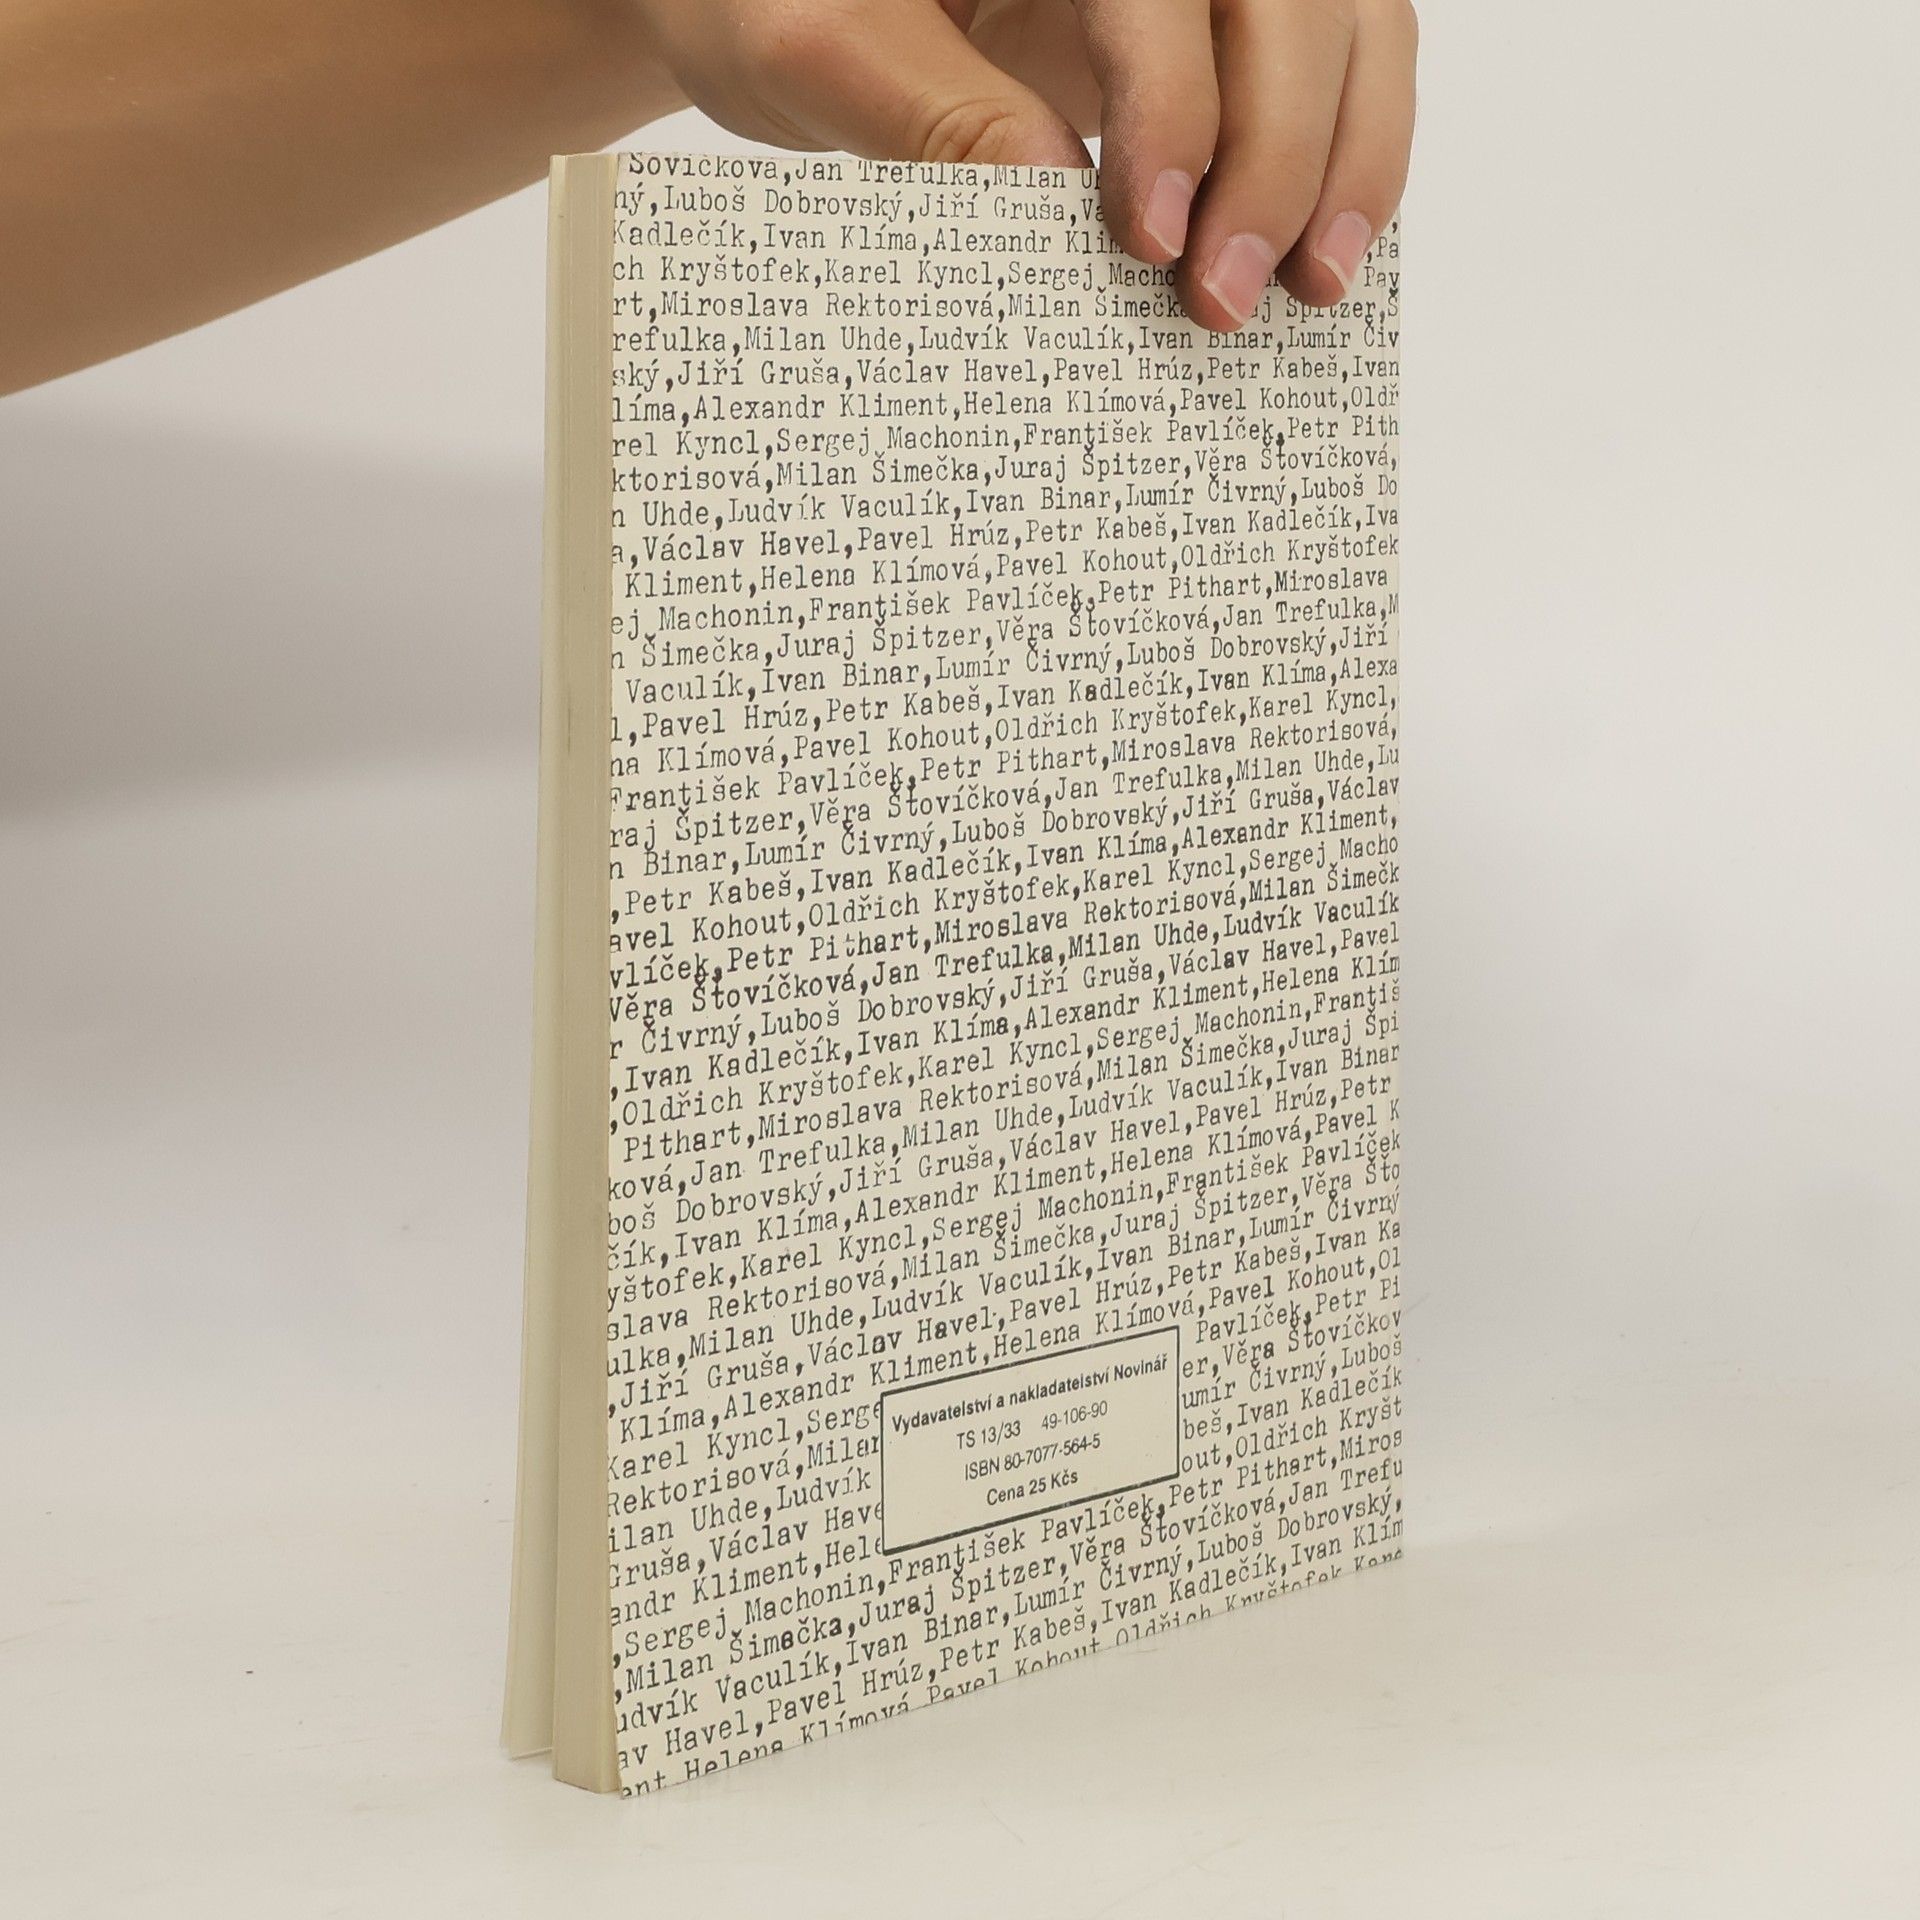 Šovíčková,Jan Trefulka,Milan
ný,Luboš Dobrovský,Jiří Gruša,Vá
Kadlečík,Ivan Klíma,Alexandr Klim ,Pa
ch Kryštofek,Karel Kyncl,Sergej Macho Pav
rt,Miroslava Rektorisová,Milan Šimečk aj Špitzer,Š
refulka,Milan Uhde,Ludvík Vaculík,Ivan Binar,Lumír Čiv
ský,Jiří Gruša,Václav Havel,Pavel Hrúz,Petr Kabeš,Ivan
líma,Alexandr Kliment,Helena Klímová,Pavel Kohout,Oldř
rel Kyncl,Sergej Machonin,František Pavlíček,Petr Pith
ktorisová,Milan Šimečka,Juraj Špitzer,Věra Šťovíčková,
n Uhde,Ludvík Vaculík,Ivan Binar,Lumír Čivrný,Luboš Do
a,Václav Havel,Pavel Hrúz,Petr Kabeš,Ivan Kadlečík,Iva
Kliment,Helena Klímová,Pavel Kohout,Oldřich Kryštofek
ej Machonin,František Pavlíček,Petr Pithart,Miroslava
n Šimečka,Juraj Špitzer,Věra Šťovíčková,Jan Trefulka,M
Vaculík,Ivan Binar,Lumír Čivrný,Luboš Dobrovský,Jiří
l,Pavel Hrúz,Petr Kabeš,Ivan Kadlečík,Ivan Klíma,Alexa
na Klímová,Pavel Kohout,Oldřich Kryštofek,Karel Kyncl,
František Pavlíček,Petr Pithart,Miroslava Rektorisová,
raj Špitzer,Věra Šťovíčková,Jan Trefulka,Milan Uhde,Lu
n Binar,Lumír Čivrný,Luboš Dobrovský,Jiří Gruša,Václav
,Petr Kabeš,Ivan Kadlečík,Ivan Klíma,Alexandr Kliment,
avel Kohout,Oldřich Kryštofek,Karel Kyncl,Sergej Macho
vlíček,Petr Pithart,Miroslava Rektorisová,Milan Šimečk
Věra Šťovíčková,Jan Trefulka,Milan Uhde,Ludvík Vaculík
r Čivrný,Luboš Dobrovský,Jiří Gruša,Václav Havel,Pavel
,Ivan Kadlečík,Ivan Klíma,Alexandr Kliment,Helena Klím
,Oldřich Kryštofek,Karel Kyncl,Sergej Machonin,Františ
Pithart,Miroslava Rektorisová,Milan Šimečka,Juraj Špi
ková,Jan Trefulka,Milan Uhde,Ludvík Vaculík,Ivan Binar
boš Dobrovský,Jiří Gruša,Václav Havel,Pavel Hrúz,Petr
čík,Ivan Klíma,Alexandr Kliment,Helena Klímová,Pavel K
yštofek,Karel Kyncl,Sergej Machonin,František Pavlíček
slava Rektorisová,Milan Šimečka,Juraj Špitzer,Věra Šťo
ulka,Milan Uhde,Ludvík Vaculík,Ivan Binar,Lumír Čivrný
,Jiří Gruša,Václav Havel,Pavel Hrúz,Petr Kabeš,Ivan Ka
Klíma,Alexandr Kliment,Helena Klímová,Pavel Kohout,Ol
Karel Kyncl,Serge Pavlíček,Petr Pi
Rektorisová,Milan er,Věra Šťovíčkov
ilan Uhde,Ludvík umír Čivrný,Luboš
Gruša,Václav Have beš,Ivan Kadlečík
andr Kliment,Hele out,Oldřich Kryšt
Vydavatelství a nakladatelství Novinář
TS 13/33 49-106-90
ISBN 80-7077-564-5
Cena 25 Kčs
,Sergej Machonin,František Pavlíček,Petr Pithart,Miros
,Milan Šimečka,Juraj Špitzer,Věra Šťovíčková,Jan Trefu
udvík Vaculík,Ivan Binar,Lumír Čivrný,Luboš Dobrovský,
av Havel,Pavel Hrúz,Petr Kabeš,Ivan Kadlečík,Ivan Klím
ent Helena Klímová Pavel Kohout Oldřich Kryštofek Kare